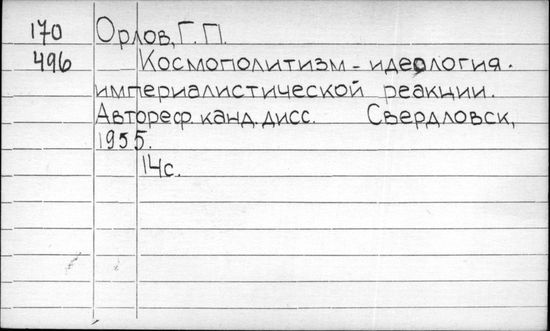 170 Орлов, Г.П.
496 Космополитизм - идеология
империалистической реакции.
Автореф. канд. дисс. Свердловск,
1955.
14с.